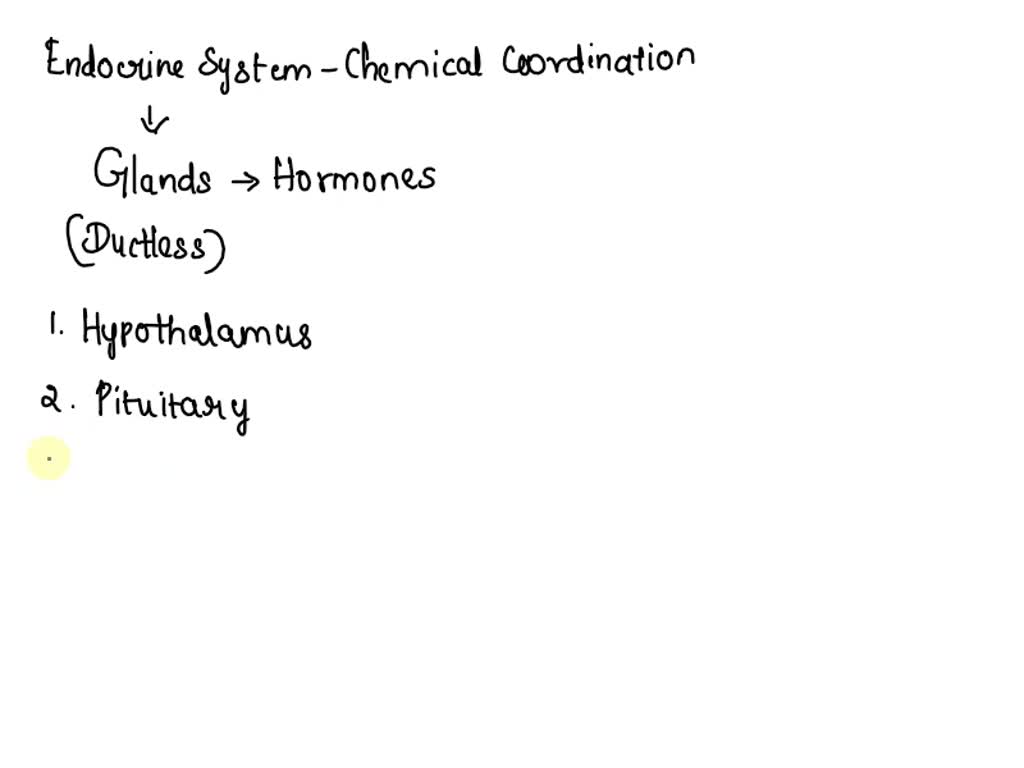 Endocrine System - Chemical Coordination
↓
Glands → Hormones
(Ductless)
1. Hypothalamus
2. Pituitary